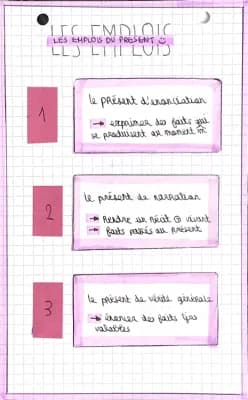 LES EMPLOIS
LES EMPLOIS DU PRÉSENT
1
le présent d'énonciation
→ exprimer des faits qui
se produisent au moment m̂
2
le présent de narration
→ Rendre un récit ⊕ vivant
→ faits passés au présent
3
le présent de vérité générale
→ énoncer des faits tjrs
valables